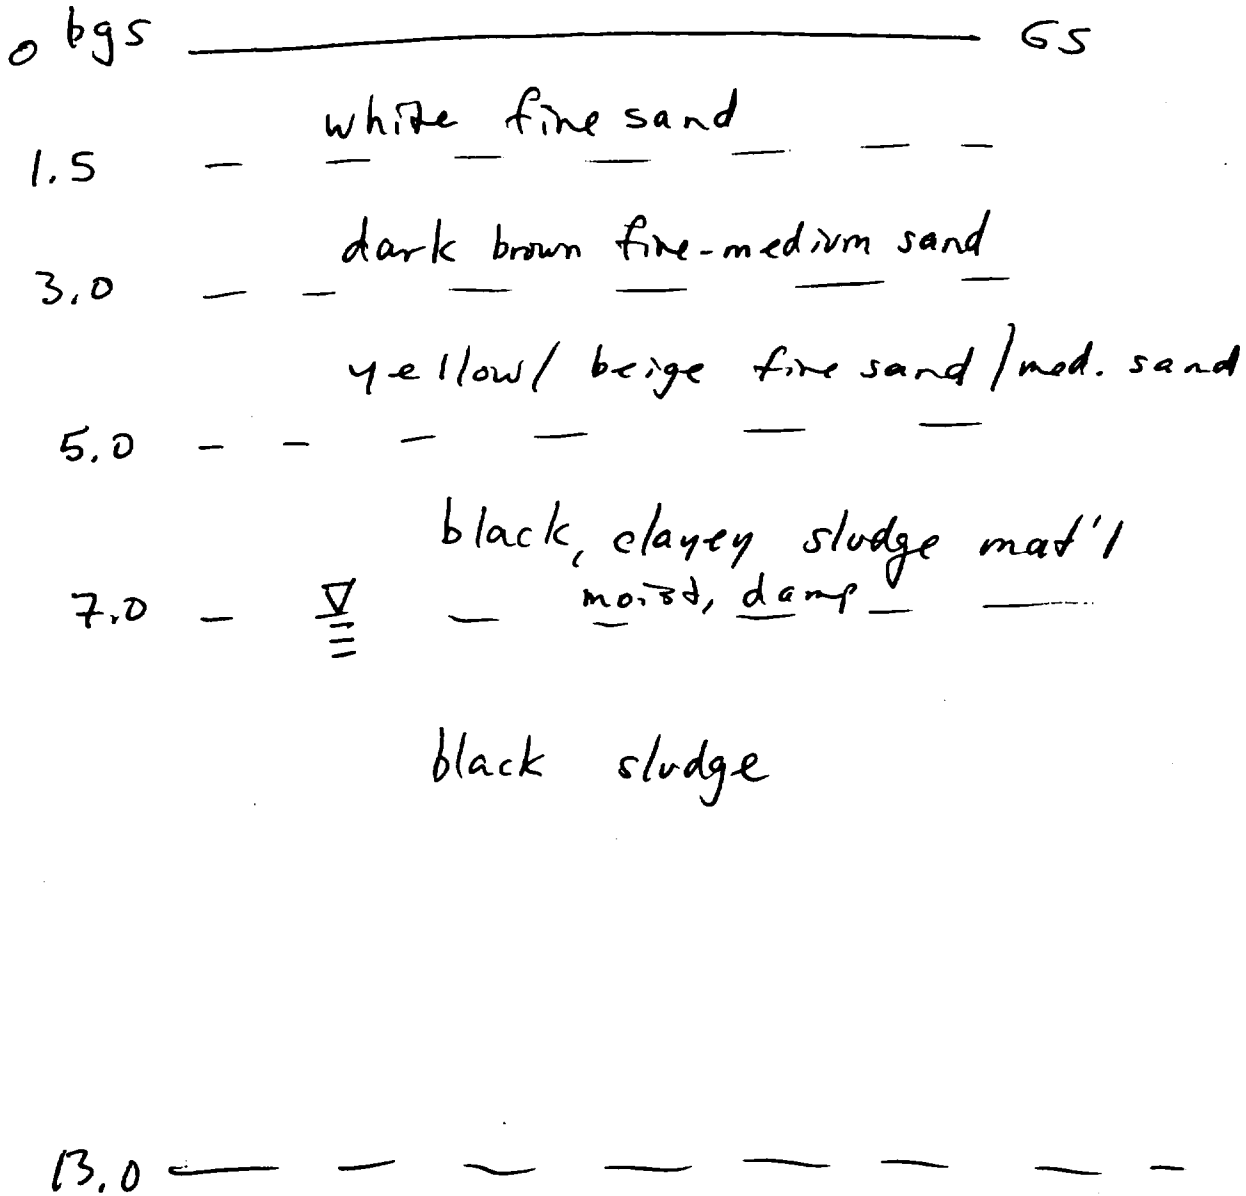 0 bgs GS
white fine sand
1.5
dark brown fine-medium sand
3.0
yellow/ beige fine sand/med. sand
5.0
black, clayey sludge mat'l
moist, damp
7.0
black sludge
13.0